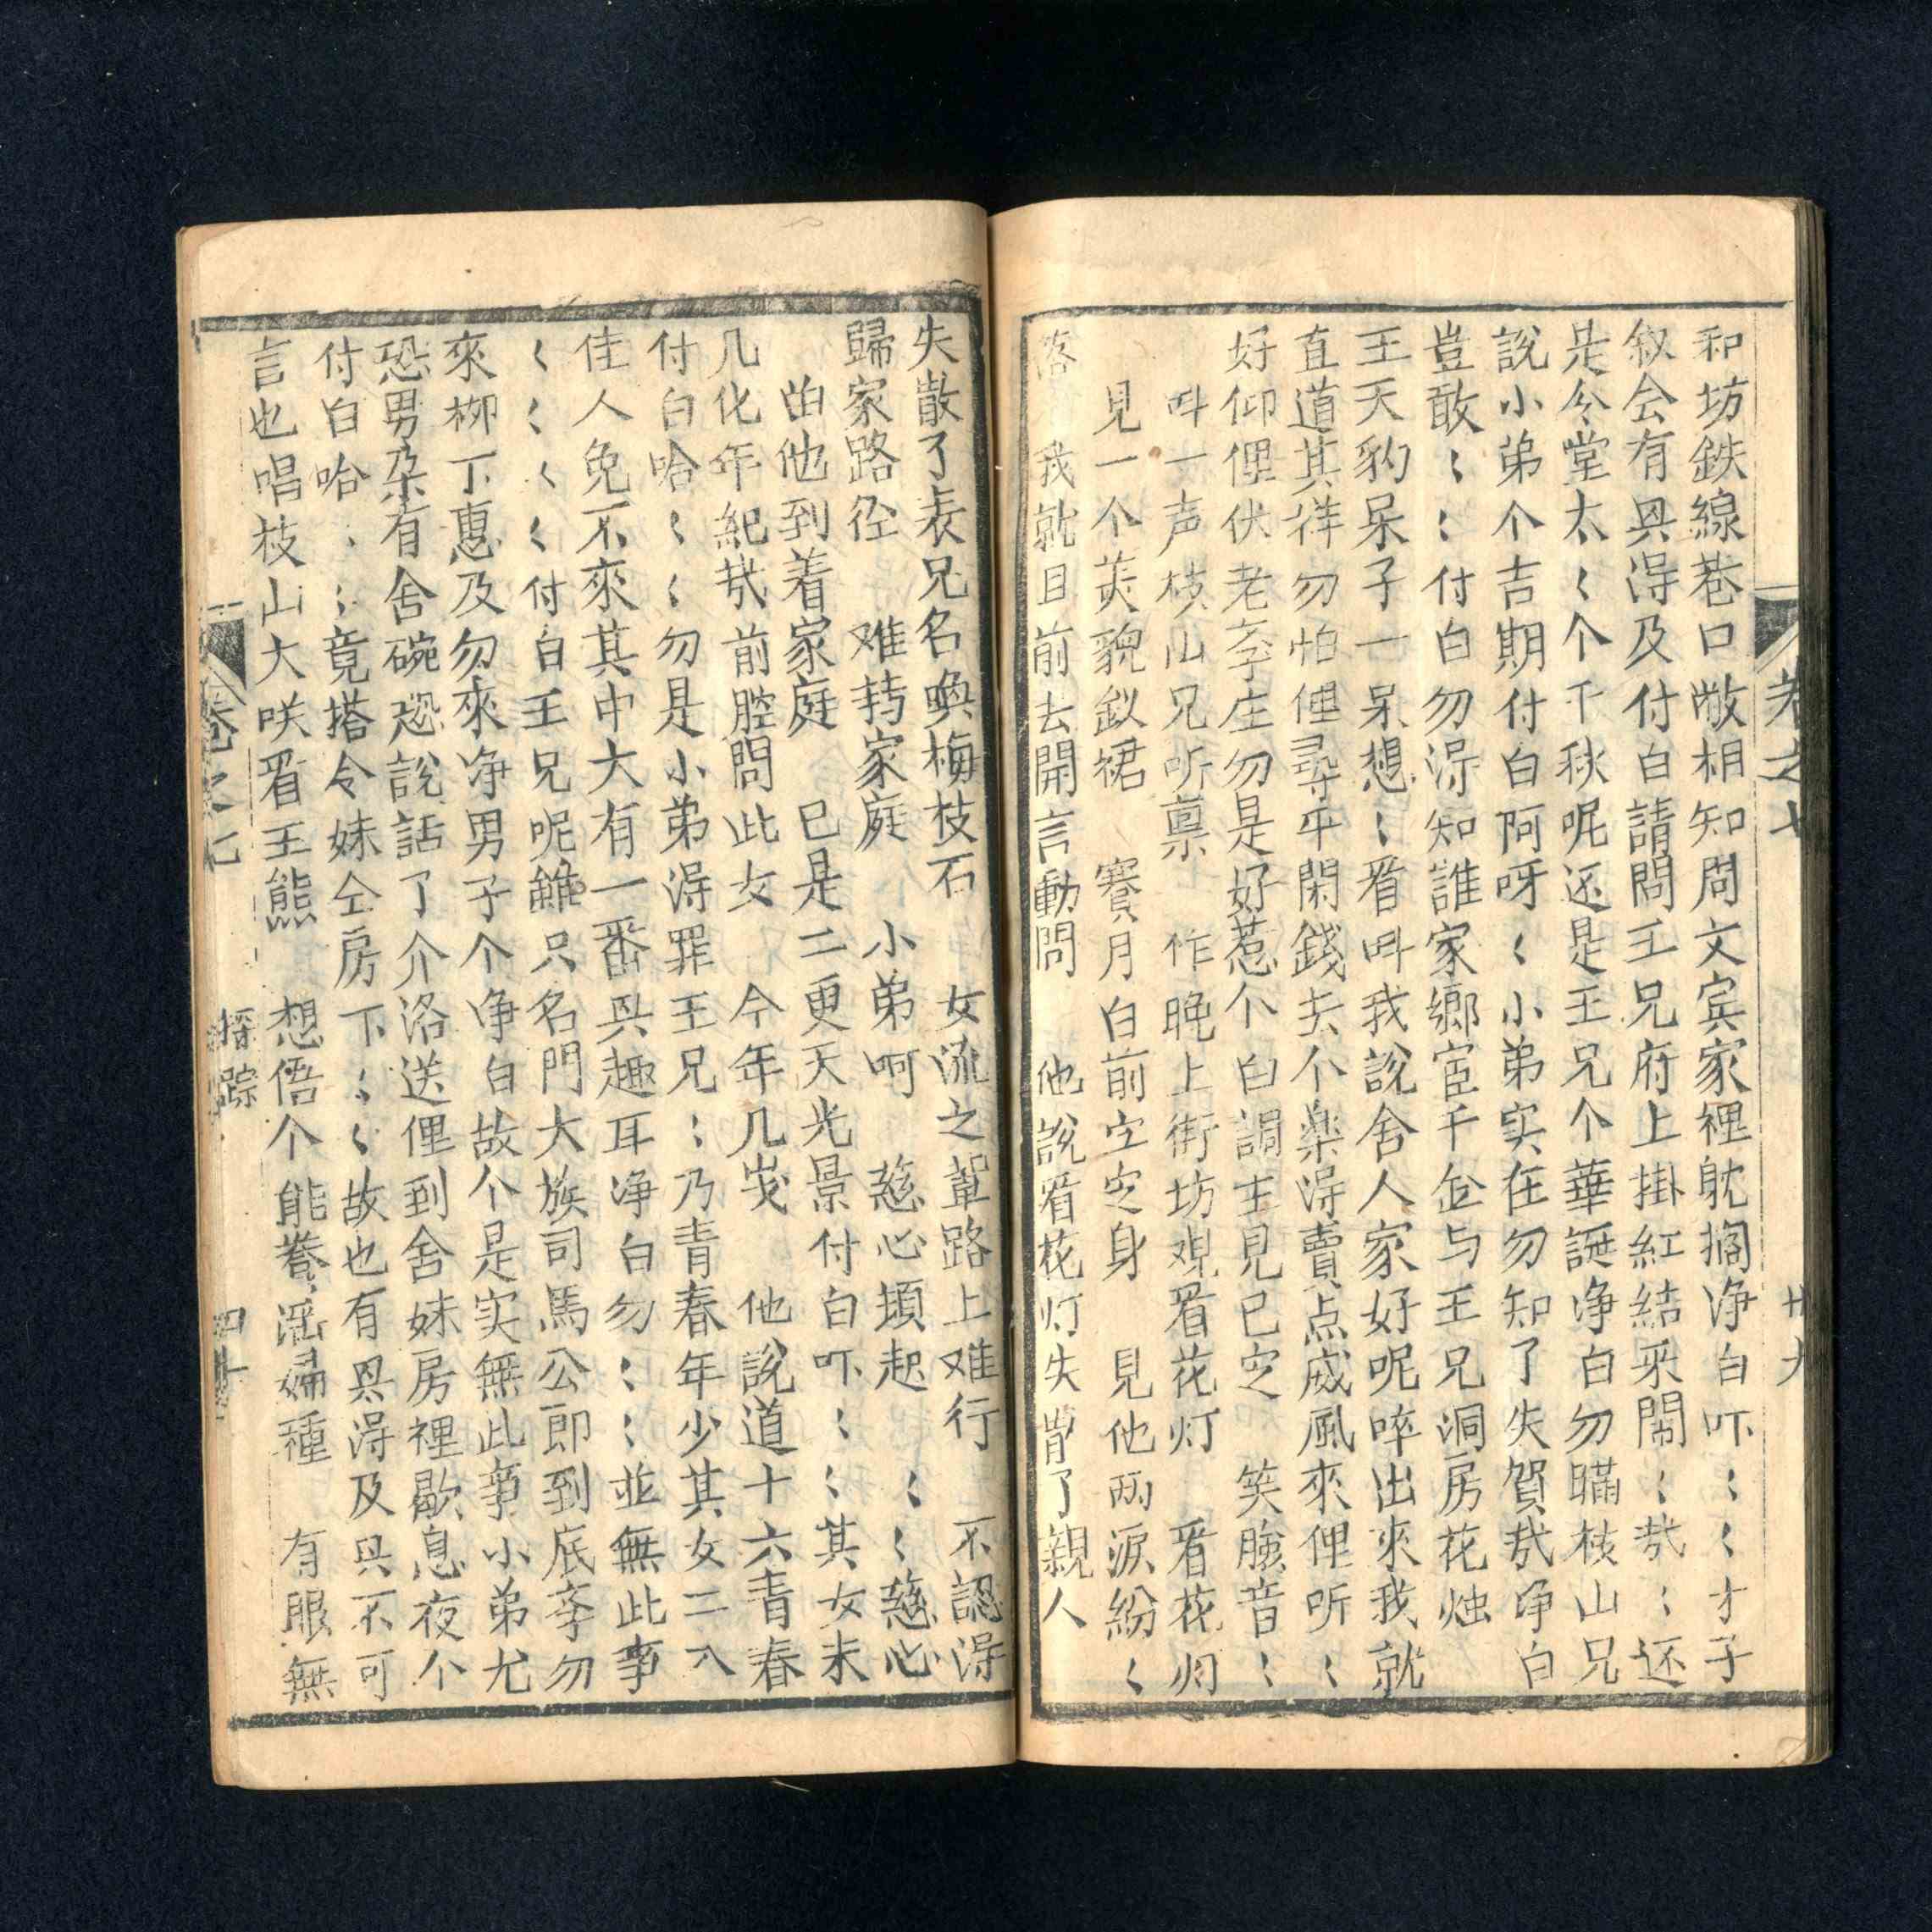 卷之七　廿九
和坊鉄線巷口敞相知周文宾家裡躭擱净白吓〻〻才子
叙会有㒷淂及付白請問王兄府上掛紅結采鬧〻哉〻还
是令堂太〻个千秋呢还是王兄个華誕净白勿瞞枝山兄
說小弟个吉期付白阿呀〻小弟实在勿知了失賀哉净白
豈敢〻〻付白勿淂知誰家鄉宦千金与王兄洞房花烛
王天豹呆子一呆想〻看呌我說舍人家好呢啐出來我就
直道其祥勿怕俚尋乎閑錢去个楽淂賣点威風來俚听〻
好仰俚伏老李庄勿是好惹个　白調主見已定　笑臉音〻
呌一声枝山兄听禀　昨晚上街坊观看花灯　看花灯
見一个美貌釵裙　賽月白前空空身　見他兩淚紛〻
落　我就目前去開言動問　他說看花灯失散了親人
失散了表兄名喚梅枝石　女流之輩路上难行　不認淂
歸家路徑　难轉家庭　小弟呵　慈心頓起　〻〻慈心
由他到着家庭　已是二更天光景付白吓〻〻其女未
几化年紀哉前腔問此女　今年几歲　他說道十六青春
付白哈〻〻勿是小弟淂罪王兄〻乃青春年少其女二八
佳人免不來其中大有一番㒷趣耳净白勿〻〻〻並無此事
〻〻〻〻付白王兄呢雖只名門大族司馬公郎到底李勿
來柳下惠及勿來净男子个净白故个是实無此事小弟尤
恐男朵有舍碗恐說話了介洛送俚到舍妹房裡歇息夜个
付白哈〻〻竟搭令妹仝房下〻〻故也有㒷淂及㒷不可
言也唱枝山大咲看王熊　想悟个能養淫婦種　有眼無
卷之七　搭踪　四十